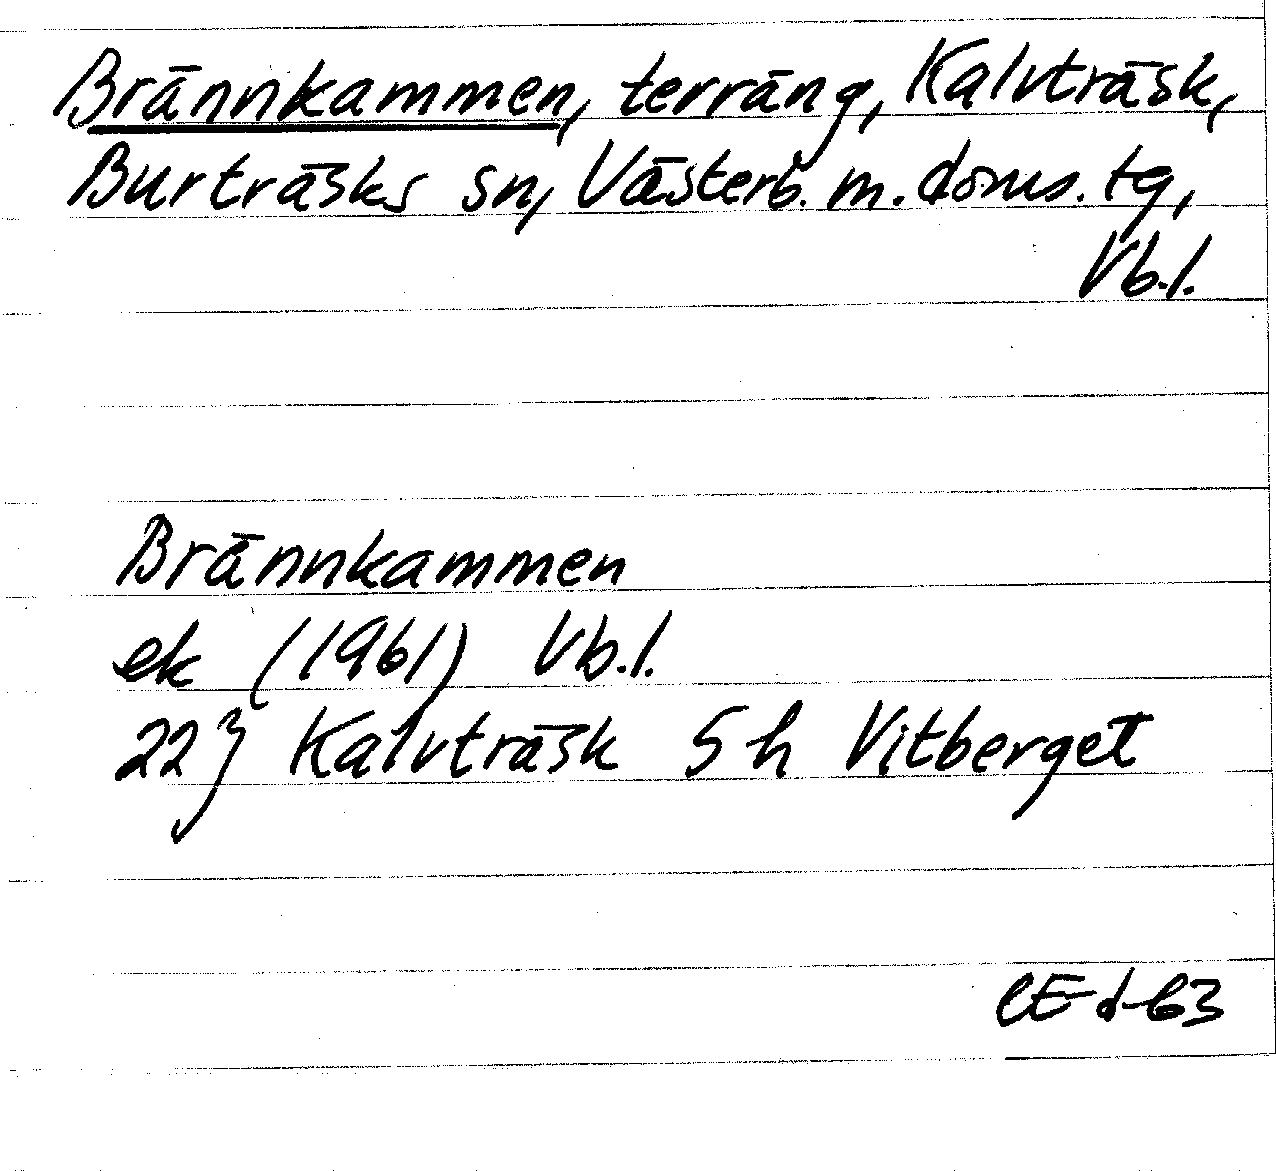 Brännkammen, terräng, Kalvträsk,
Burträsks sn, Västerb. m. doms. tg,
Vb.l.
Brännkammen
ek (1961) Vb.l.
22J Kalvträsk 5h Vitberget